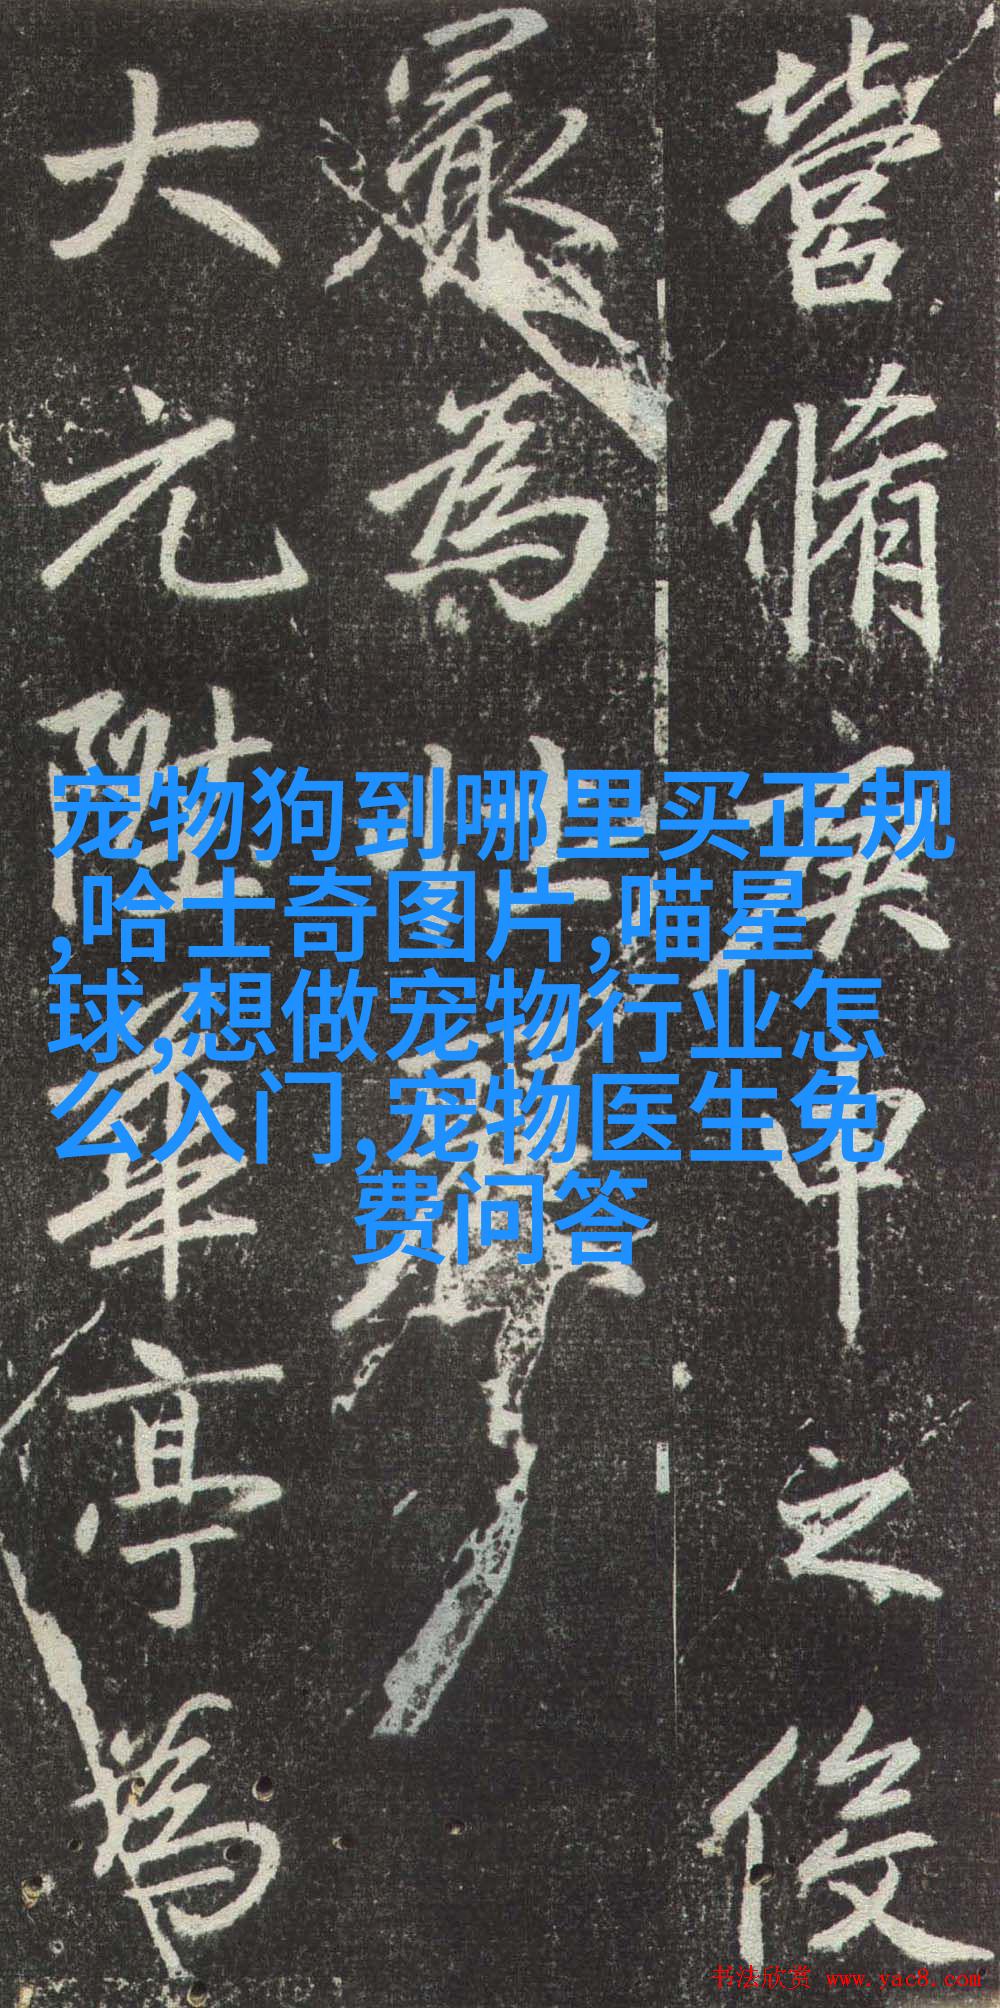 營脩之
為
大元陞華亭為
宠物狗到哪里买正规
,哈士奇图片,喵星
球,想做宠物行业怎
么入门,宠物医生免
费问答
书法欣赏 www.yac8.com